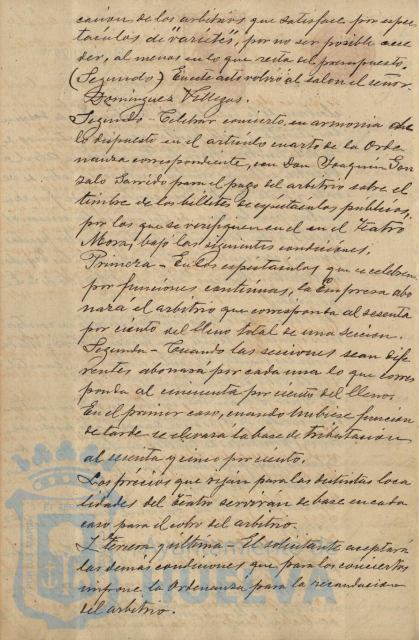 cación de los arbitrios que satisface por espec-
táculos de "varietés", por no ser posible acce-
der, al menos en lo que resta del presupuesto.
(Segundo) En este acto volvió al salon el señor
Domínguez Villegas.
Segundo - Celebrar concierto, en armonia de
lo dispuesto en el artículo cuarto de la Orde-
nanza correspondiente, con Don Joaquín Gon-
zalo Garrido para el pago del arbitrio sobre el
timbre de los billetes de espectáculos públicos,
por los que se verifiquen en el en el Teatro
Mora, bajo las siguientes condiciones.
Primera - En los espectáculos que se celebren
por funciones continuas, la Empresa abo-
nará el arbitrio que corresponda al sesenta
por ciento del lleno total de una sección.
Segunda - Cuando las secciones sean dife-
rentes abonará por cada una lo que corres-
ponda al cincuenta por ciento del lleno.
En el primer caso, cuando hubiese función
de tarde se elevará la base de tributación
al sesenta y cinco por ciento.
Los precios que rijan para las distintas loca-
lidades del Teatro servirán de base en cada
caso para el cobro del arbitrio.
Y Tercera y última - El solicitante aceptará
las demás condiciones que para los conciertos
impone la Ordenanza para la recaudación
del arbitrio.
HUELVA